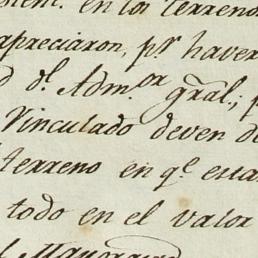 en los terrenos
apreciaron, p.r haver
d d.l Adm.or gral.; p
Vinculado deven d
terreno en q.e esta
todo en el valor